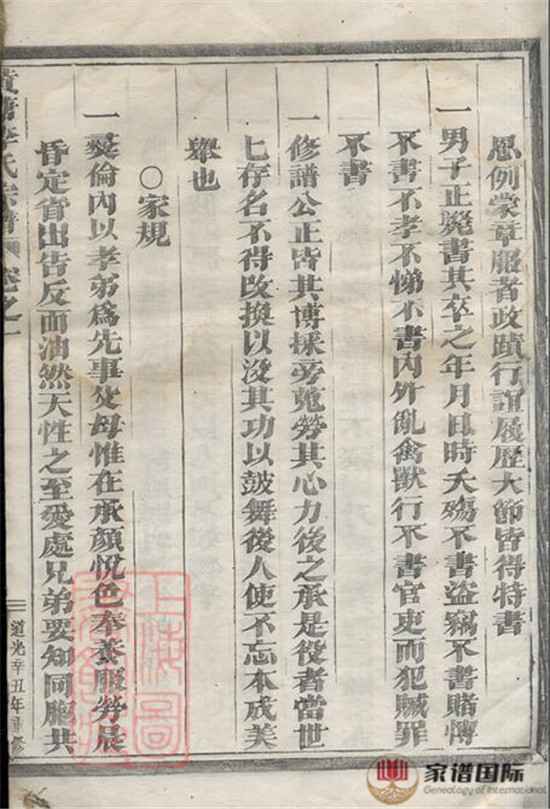 恩例蒙章服者政蹟行誼履歷大節皆得特書
一男子正斃書其卒之年月日時夭殤不書盜竊不書賭愽
不書不孝不悌不書內外亂禽獸行不書官吏而犯贓罪
不書
一修譜公正皆其博採旁蒐勞其心力後之承是役者當世
七存名不得改換以沒其功以鼓舞後人使不忘本成美
舉也
○家規
一彞倫內以孝弟爲先事父母惟在承顏悅色奉養服勞晨
昏定省出告反面油然天性之至愛處兄弟要知同胞共
李氏宗譜 卷之一
道光辛丑年重修
上海圖
家谱国际
Genealogy of International